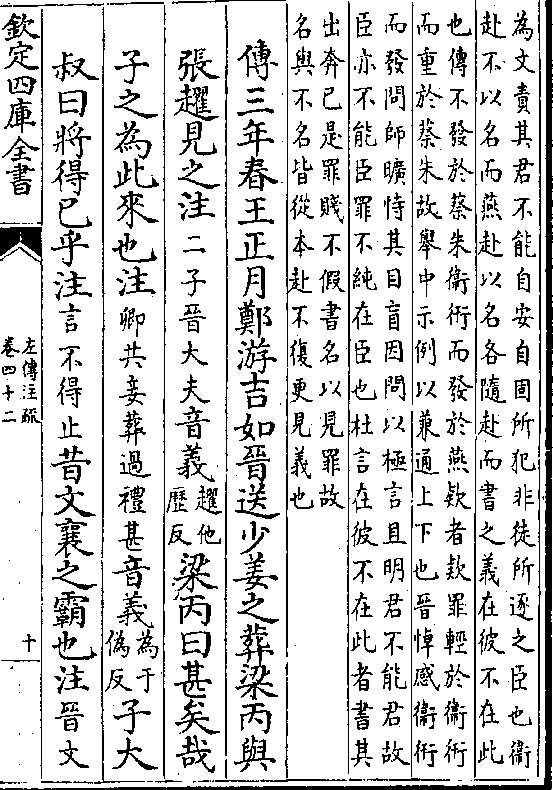 為文責其君不能自安自固所犯非徒所逐之臣也衞
赴不以名而燕赴以名各隨赴而書之義在彼不在此
也傳不發於蔡朱衞衎而發於燕欵者欵罪輕於衞衎
而重於蔡朱故舉中示例以兼通上下也晉悼感衞衎
而發問師曠恃其目盲因問以極言且明君不能君故
臣亦不能臣罪不純在臣也杜言在彼不在此者書其
出奔已是罪賤不假書名以見罪故
名與不名皆從本赴不復更見義也
傳三年春王正月鄭游吉如晉送少姜之葬梁丙與
張趯見之注二子晉大夫音義趯他歷反梁丙曰甚矣哉
子之為此來也注卿共妾葬過禮甚音義為于偽反子大
叔曰將得已乎注言不得止昔文襄之霸也注晉文
欽定四庫全書
左傳注疏
卷四十二
十